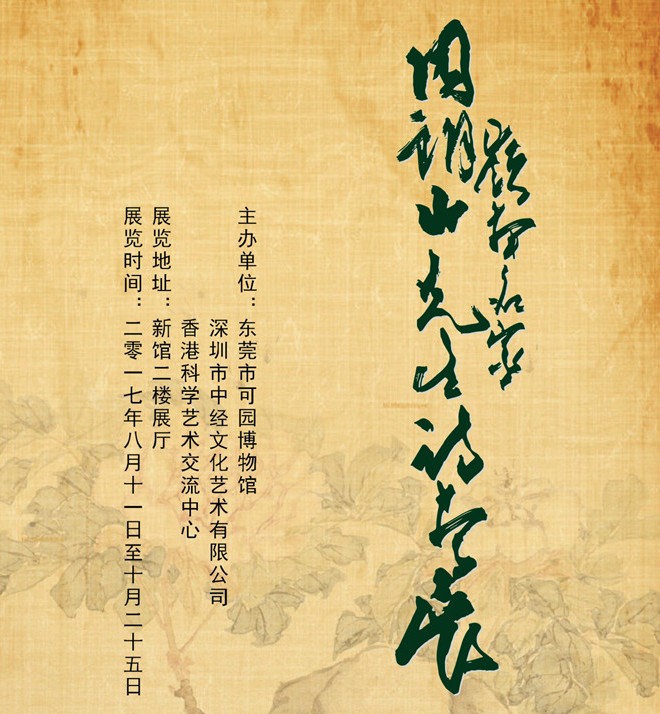 嶺南名家
周朗山先生诗书展
主办单位：东莞市可园博物馆
深圳市中经文化艺术有限公司
香港科学艺术交流中心
展览地址：新馆二楼展厅
展览时间：二零一七年八月十一日至十月二十五日